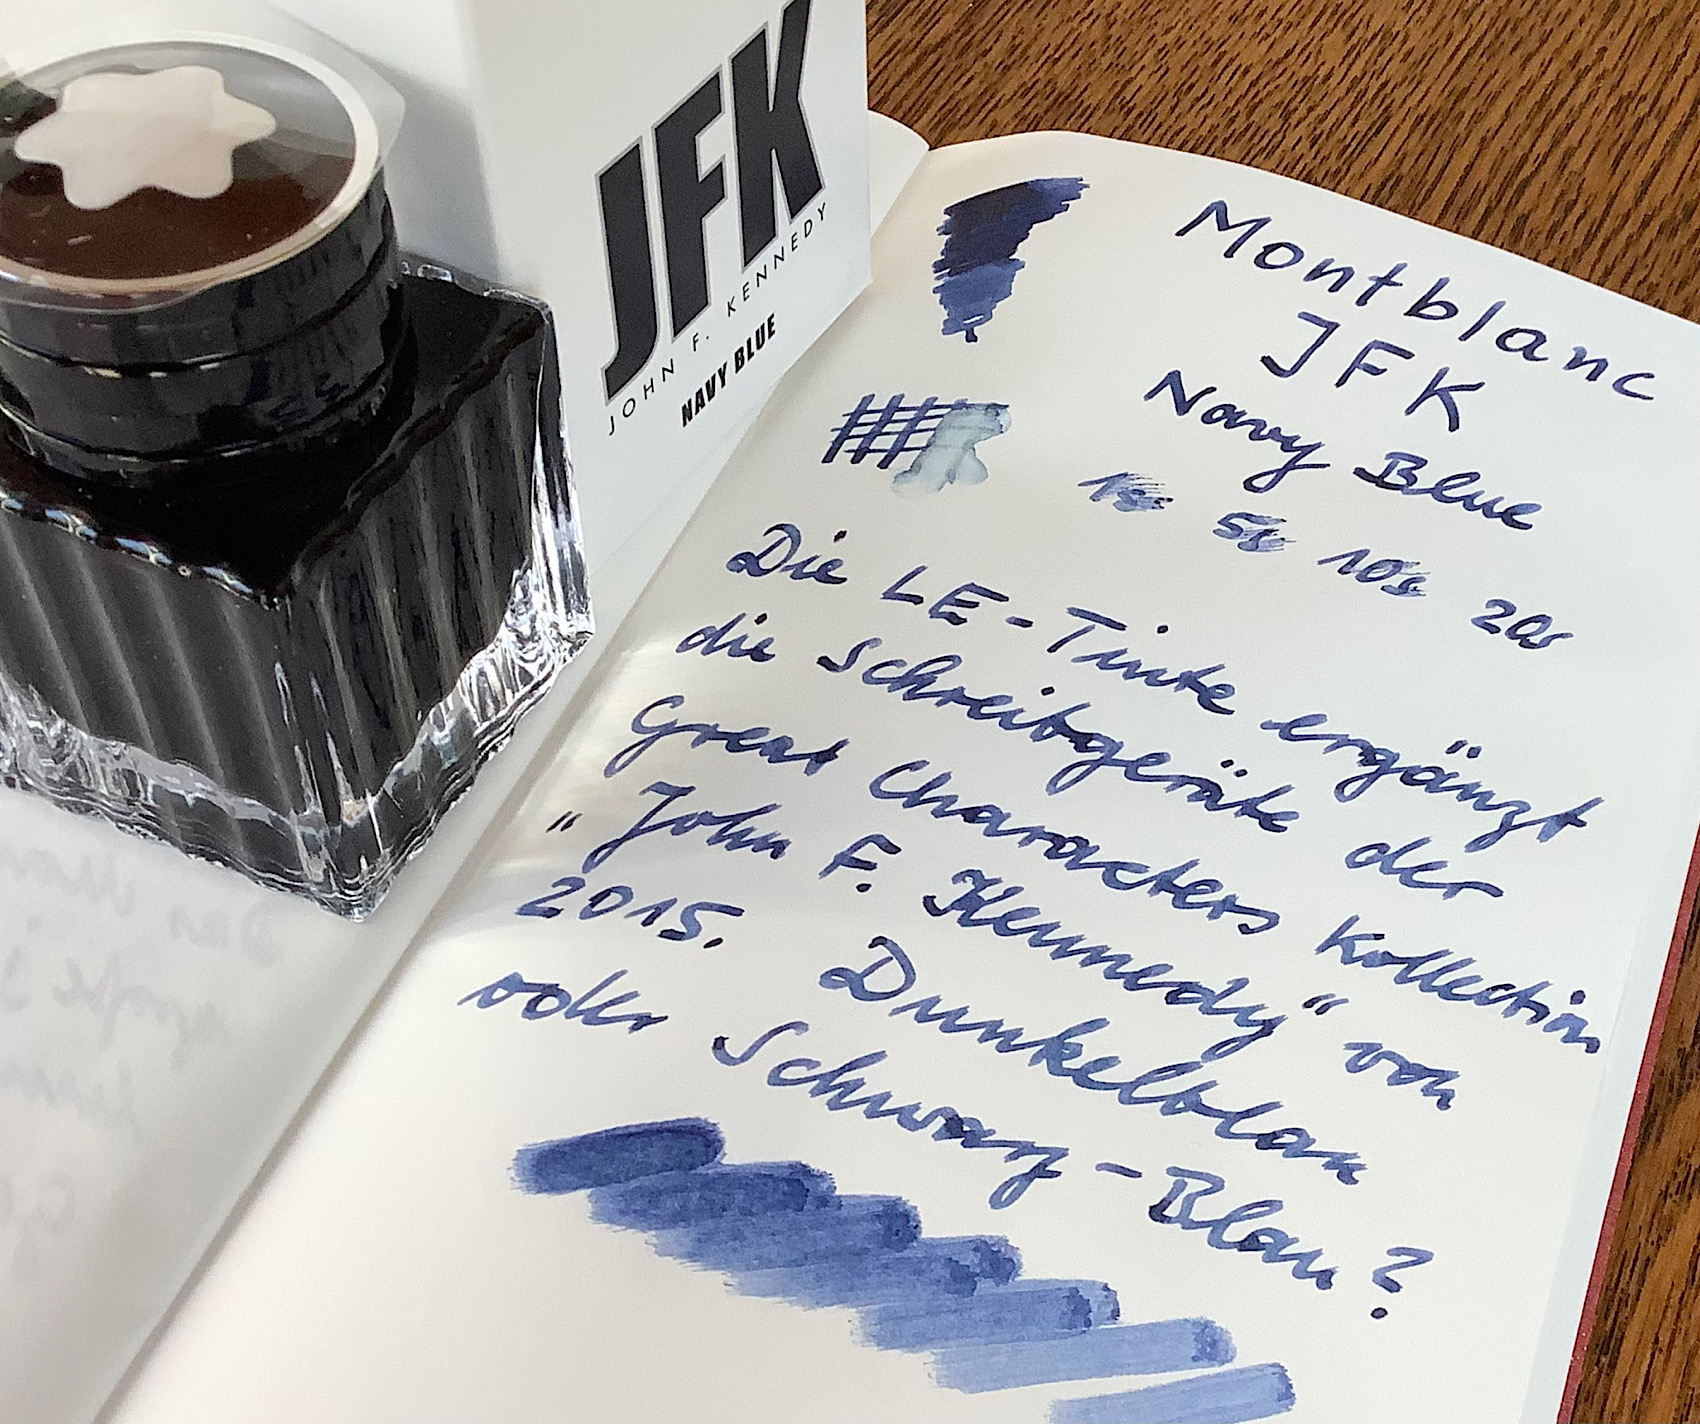 JFK
JOHN F. KENNEDY
NAVY BLUE
Montblanc
JFK
Navy Blue
1s 5s 10s 20s
Die LE-Tinte ergänzt
die Schreibgeräte der
Great Characters Kollection
"John F. Kennedy" von
2015. Dunkelblau
oder Schwarz-Blau?